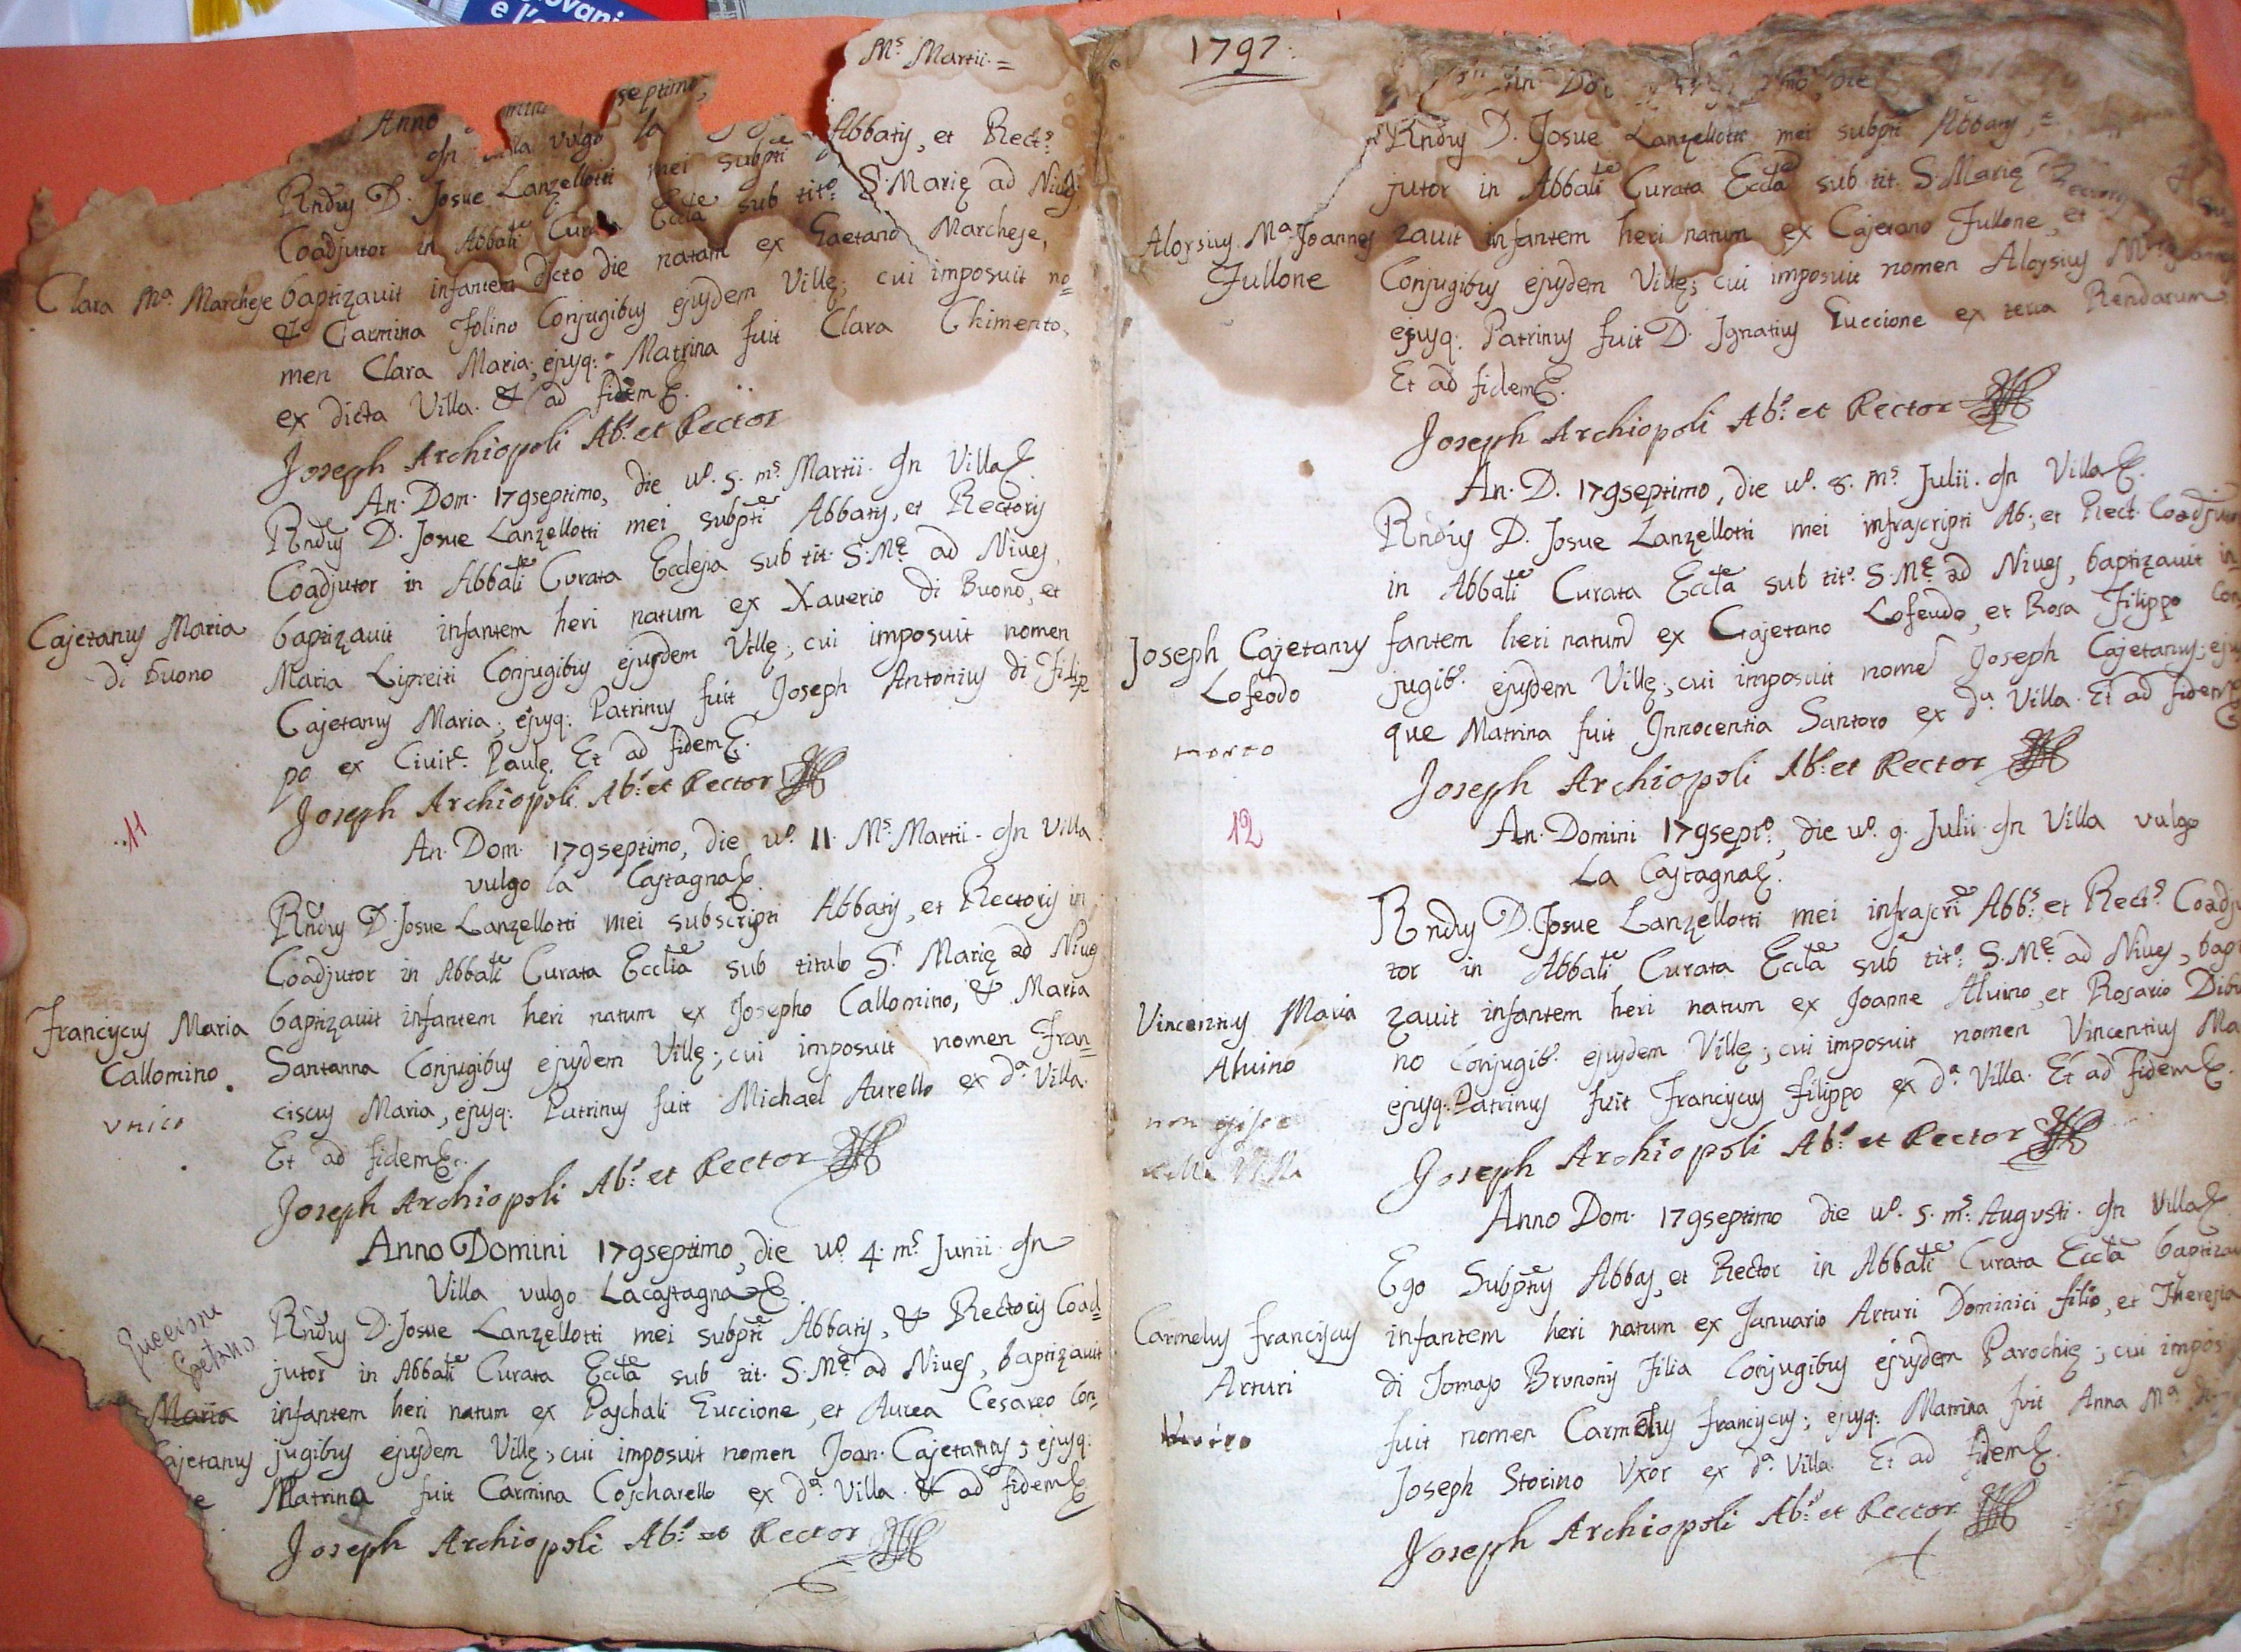 Ms. Martii. =
Anno septimo,
Jn vulgo la
Rndus D. Josue Lanzellotti mei subpti Abbatis, et Rects.
Coadjutor in Abbali Curata Eccla sub tito. S. Marię ad Nives
Clara Ma. Marchese
baptizauit infantem dicto die natam ex Gaetano Marchese,
& Carmina Folino Conjugibus ejusdem Villę; cui imposuit no=
men Clara Maria; ejusq: Matrina fuit Clara Chimento,
ex dicta Villa. & ad fidem&.
Joseph Archiopoli Abs. et Rector
An. Dom. 179septimo, die uo. 5. ms. Martii. Jn Villa&.
Rndus D. Josue Lanzellotti mei subpti Abbatis, et Rectoris
Coadjutor in Abbali Curata Ecclesia sub tit. S. Mę ad Nives,
Cajetanus Maria
di Buono
baptizauit infantem heri natum ex Xauerio di Buono, et
Maria Lipreiti Conjugibus ejusdem Villę; cui imposuit nomen
Cajetanus Maria; ejusq: Patrinus fuit Joseph Antonius di Filip
po ex Ciuite. Paulę. Et ad fidem&.
Joseph Archiopoli Abs. et Rector
11
An. Dom. 179septimo, die uo. 11. Ms. Martii. Jn Villa
vulgo la Castagna&.
Rndus D. Josue Lanzellotti mei subscripti Abbatis, et Rectoris in
Coadjutor in Abbali Curata Ecclia sub titulo S. Marię ad Nives
Franciscus Maria
Callomino
unico
baptizauit infantem heri natum ex Josepho Callomino, & Maria
Santanna Conjugibus ejusdem Villę; cui imposuit nomen Fran=
ciscus Maria, ejusq: Patrinus fuit Michael Aurello ex da. Villa.
Et ad fidem&.
Joseph Archiopoli Abs. et Rector
Anno Domini 179septimo, die uo. 4. ms. Junii. Jn
Villa vulgo Lacastagna&.
Guccione
Gaetano
Rndus D. Josue Lanzellotti mei subpti Abbatis, & Rectoris Coad=
jutor in Abbali Curata Eccla sub tit. S. Mę ad Nives, baptizauit
Maria
Cajetanus
infantem heri natum ex Paschali Guccione, et Aurea Cesareo Con=
jugibus ejusdem Villę; cui imposuit nomen Joan. Cajetanus; ejusq:
Matrina fuit Carmina Coscharello ex da. Villa. & ad fidem&
Joseph Archiopoli Abs. et Rector
1797.
Rndus D. Josue Lanzellotti mei subpti Abbatis, =
jutor in Abbali Curata Eccla sub tit. S. Marię
Aloysius Ma. Joannes
Fullone
zauit infantem heri natum ex Cajetano Fullone, et
Conjugibus ejusdem Villę; cui imposuit nomen Aloysius Ma. Joannes
ejusq: Patrinus fuit D. Jgnatius Guccione ex terra Rendarum.
Et ad fidem&.
Joseph Archiopoli Abs. et Rector
An. D. 179septimo, die uo. 8. ms. Julii. Jn Villa&.
Rndus D. Josue Lanzellotti mei infrascripti Ab:, et Rect. Coadjutor
in Abbali Curata Eccla sub tito. S. Mę ad Nives, baptizauit in
Joseph Cajetanus
Lofeodo
morto
fantem heri natum ex Cajetano Lofeudo, et Rosa Filippo Con
jugibs. ejusdem Villę; cui imposuit nomen Joseph Cajetanus; ejus
que Matrina fuit Jnnocentia Santoro ex da. Villa. Et ad fidem&
Joseph Archiopoli Abs. et Rector
12
An. Domini 179septo., die uo. 9. Julii. Jn Villa vulgo
La Castagna&.
Rndus D. Josue Lanzellotti mei infrascri Abbs: et Rects. Coadju
tor in Abbali Curata Eccla sub tito. S. Mę ad Nives, bapti
Vincentius Maria
Aluino
non esiste
nella Villa
zauit infantem heri natum ex Joanne Aluino, et Rosario Dibo
no Conjugibs. ejusdem Villę; cui imposuit nomen Vincentius Ma
ejusq: Patrinus fuit Franciscus Filippo ex da. Villa. Et ad fidem&.
Joseph Archiopoli Abs. et Rector
Anno Dom. 179septimo die uo. 5. ms. Augusti. Jn Villa&.
Ego Subptus Abbas, et Rector in Abbali Curata Eccla baptizaui
Carmelus Franciscus
Arturi
infantem heri natum ex Januario Arturi Dominici filio, et Theresia
di Tomaso Brunonis Filia Conjugibus ejusdem Parochię; cui impos
fuit nomen Carmelus Franciscus; ejusq: Matrina fuit Anna Ma. di
Joseph Storino Uxor ex da. Villa. Et ad fidem&.
Joseph Archiopoli Abs. et Rector